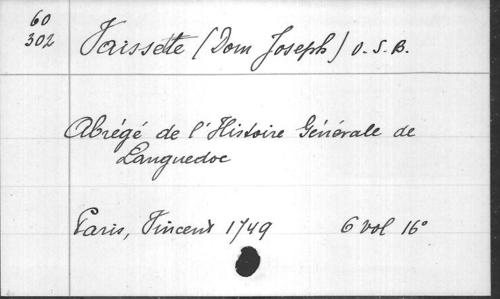 60
302
Vaissette (Dom Joseph) O. S. B.
Abrégé de l'Histoire Générale de
Languedoc
Paris, Vincent 1749 6 vol 16°